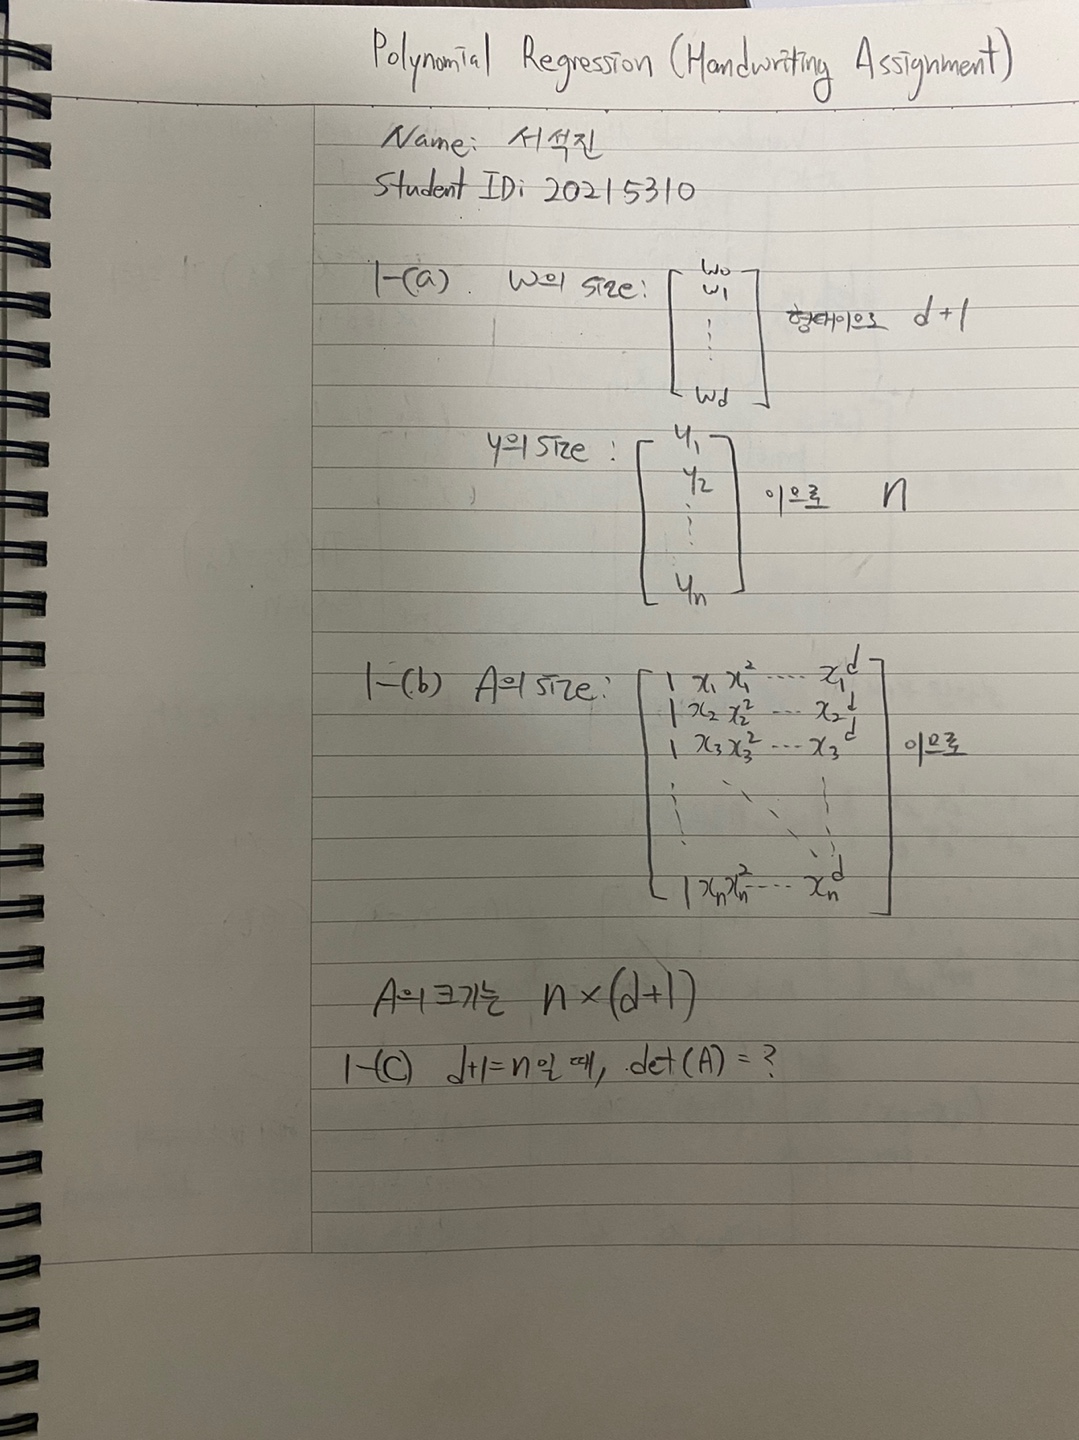 Polynomial Regression (Handwriting Assignment)
Name: 서석진
Student ID: 20215310
1-(a). w의 size: [ w₀ w₁ ⋮ w_d ] 형태이므로 d+1
y의 size : [ y₁ y₂ ⋮ y_n ] 이므로 n
1-(b) A의 size: [
1 x₁ x₁² ···· x₁^d
1 x₂ x₂² ··· x₂^d
1 x₃ x₃² ··· x₃^d
⋮ ⋱ ⋮
1 x_n x_n² ···· x_n^d
] 이므로
A의 크기는 n×(d+1)
1-(C) d+1=n일 때, det(A) = ?